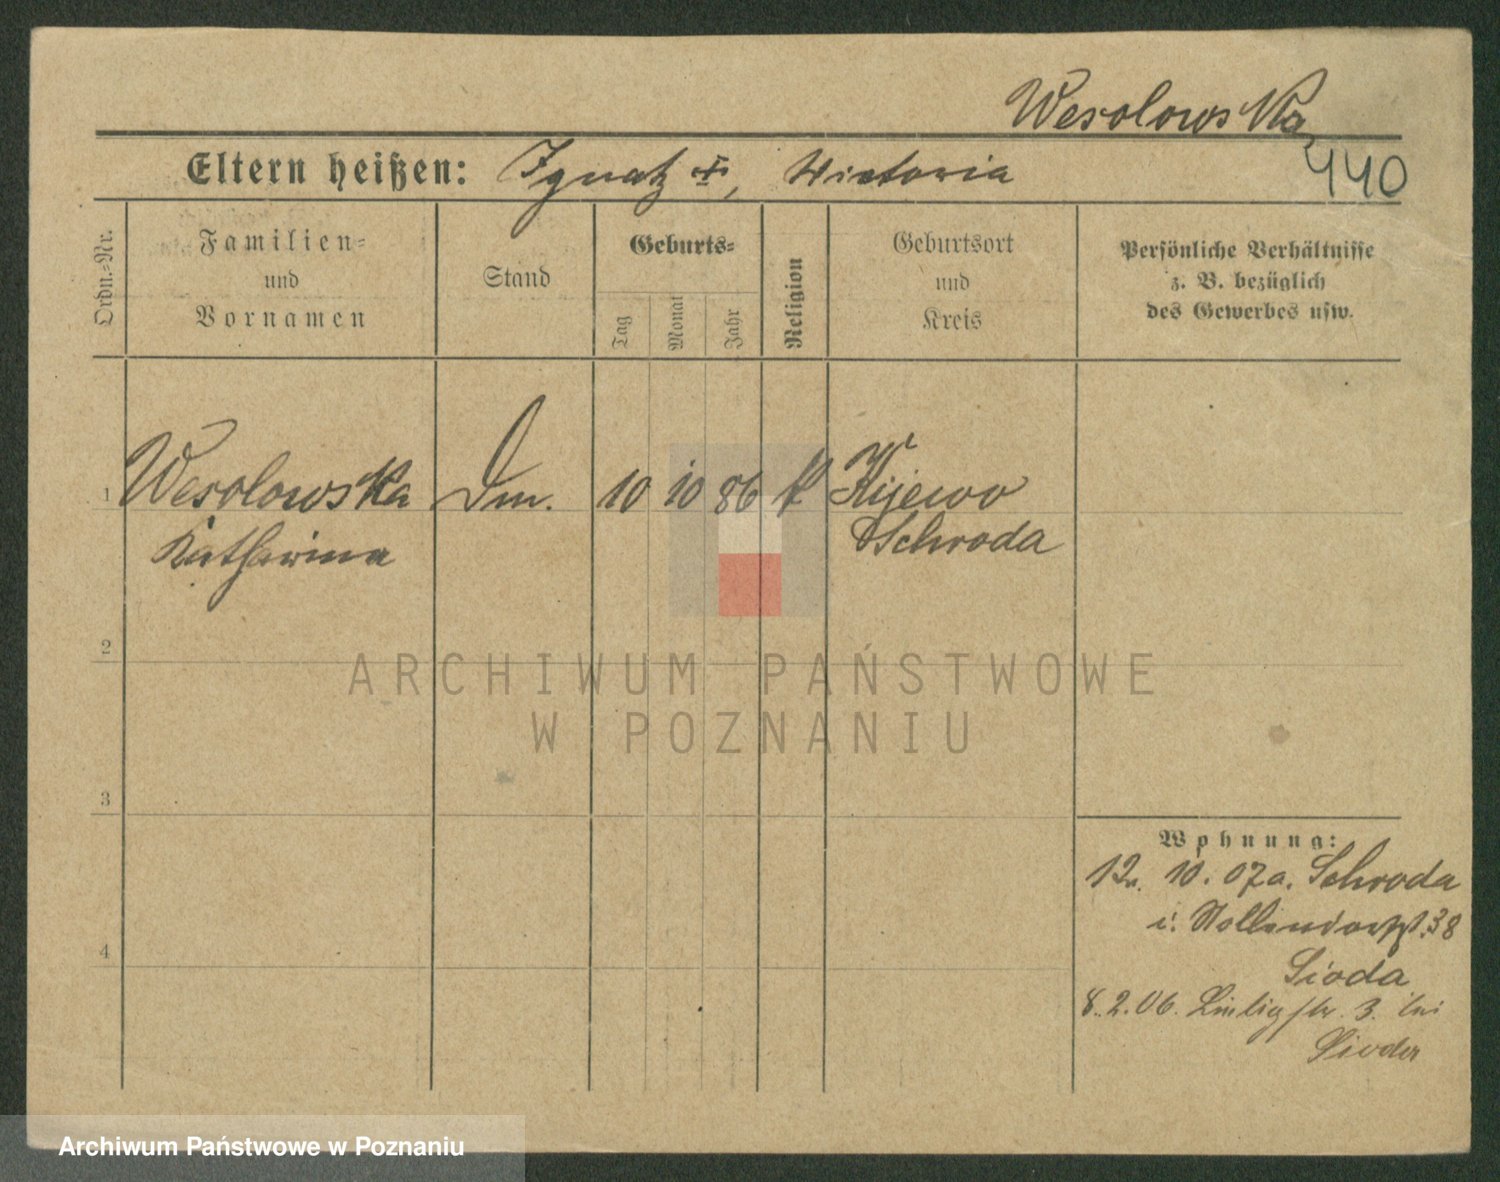 Wesolowska
440
Eltern heißen: Ignatz +, Victoria
Ordn.-Nr.
Familien-
und
Vornamen
Stand
Geburts-
Tag
Monat
Jahr
Religion
Geburtsort
und
Kreis
Persönliche Verhältnisse
z. B. bezüglich
des Gewerbes usw.
1 Wesolowska Dm. 10 10 86 k Kijewo
Katharina Schroda
2
3
4
Wohnung:
12. 10. 07 a. Schroda
i. 38
Sioda
8. 2. 06. 3. bei
Sioda
ARCHIWUM PAŃSTWOWE
W POZNANIU
Archiwum Państwowe w Poznaniu